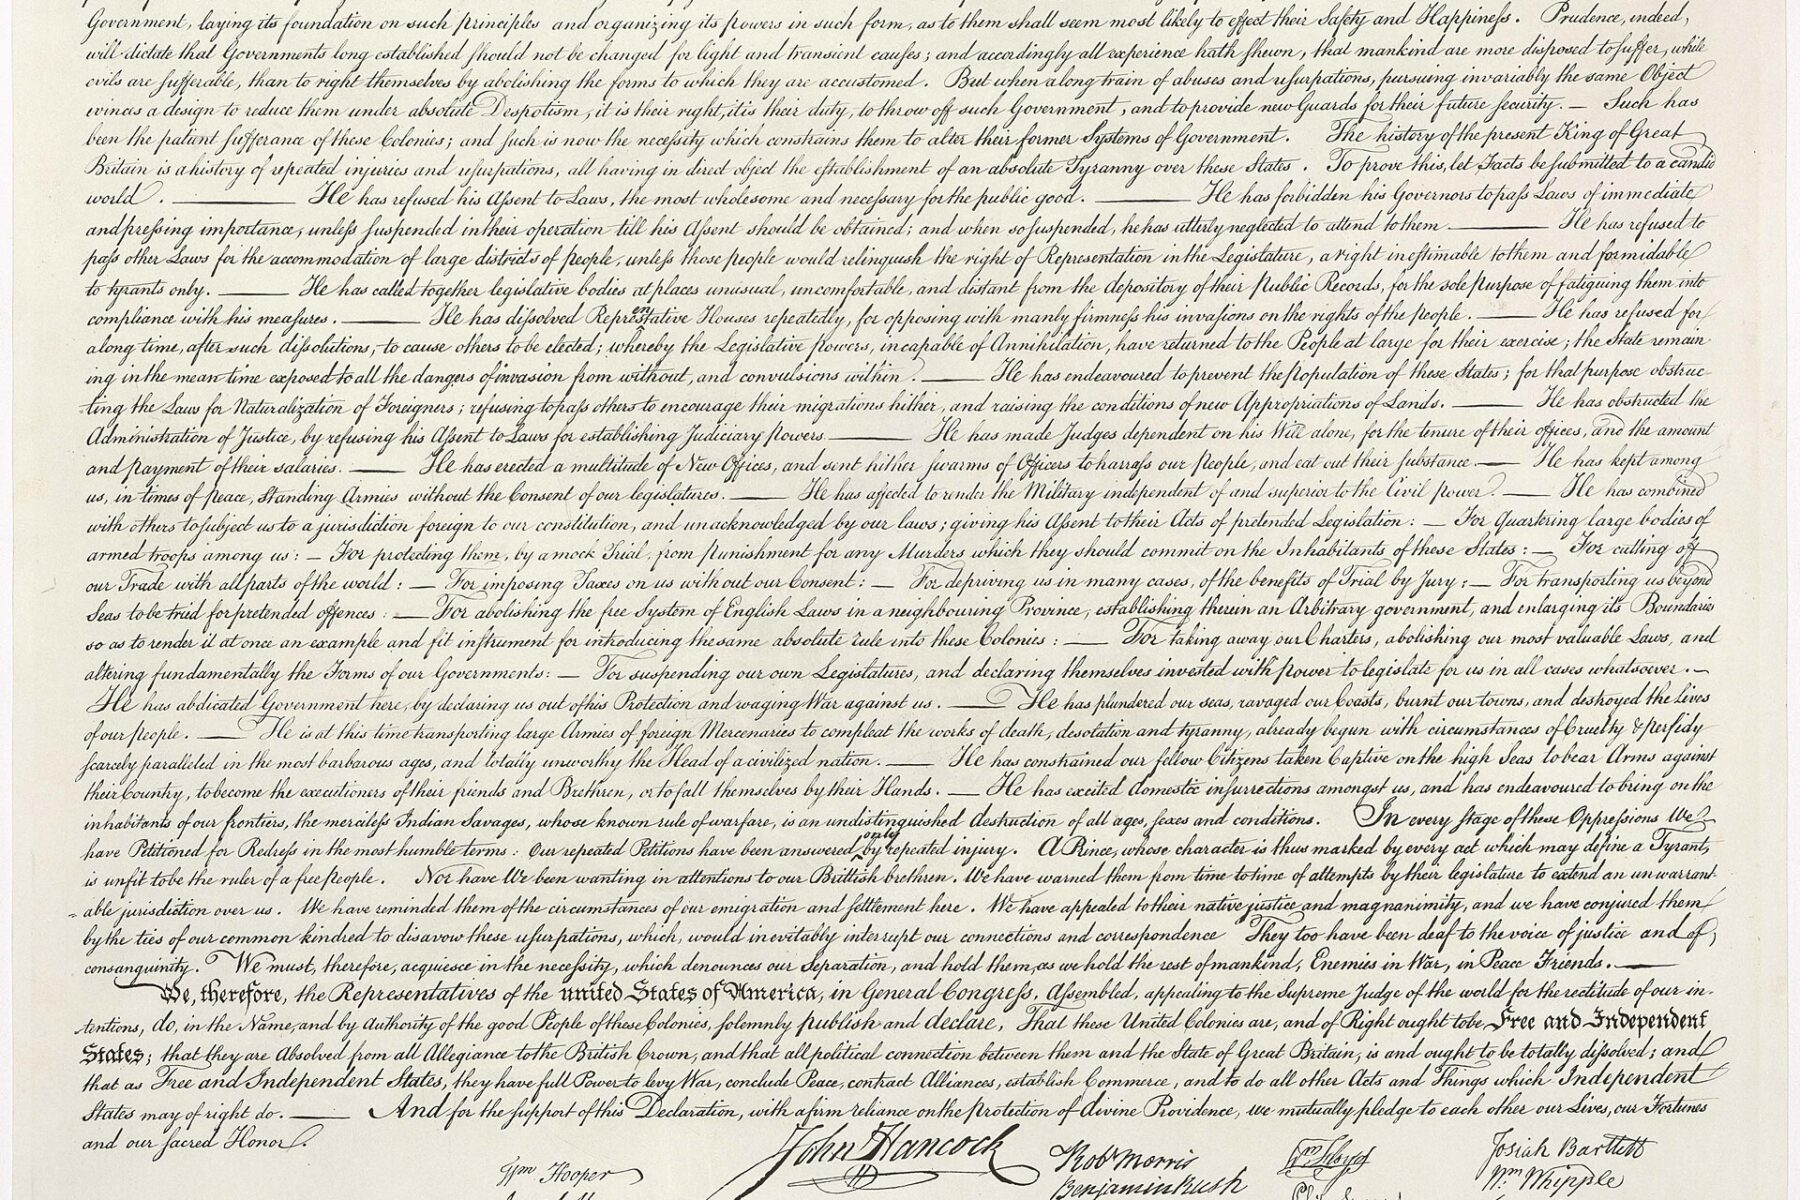 Government, laying its foundation on such principles and organizing its powers in such form, as to them shall seem most likely to effect their Safety and Happiness. Prudence, indeed,
will dictate that Governments long established should not be changed for light and transient causes; and accordingly all experience hath shewn, that mankind are more disposed to suffer, while
evils are sufferable, than to right themselves by abolishing the forms to which they are accustomed. But when a long train of abuses and usurpations, pursuing invariably the same Object
evinces a design to reduce them under absolute Despotism, it is their right, it is their duty, to throw off such Government, and to provide new Guards for their future security. — Such has
been the patient sufferance of these Colonies; and such is now the necessity which constrains them to alter their former Systems of Government. The history of the present King of Great
Britain is a history of repeated injuries and usurpations, all having in direct object the establishment of an absolute Tyranny over these States. To prove this, let Facts be submitted to a candid
world. — He has refused his Assent to Laws, the most wholesome and necessary for the public good. — He has forbidden his Governors to pass Laws of immediate
and pressing importance, unless suspended in their operation till his Assent should be obtained; and when so suspended, he has utterly neglected to attend to them. — He has refused to
pass other Laws for the accommodation of large districts of people, unless those people would relinquish the right of Representation in the Legislature, a right inestimable to them and formidable
to tyrants only. — He has called together legislative bodies at places unusual, uncomfortable, and distant from the depository of their Public Records, for the sole purpose of fatiguing them into
compliance with his measures. — He has dissolved Representative Houses repeatedly, for opposing with manly firmness his invasions on the rights of the people. — He has refused for
a long time, after such dissolutions, to cause others to be elected; whereby the Legislative powers, incapable of Annihilation, have returned to the People at large for their exercise; the State remain
ing in the mean time exposed to all the dangers of invasion from without, and convulsions within. — He has endeavoured to prevent the population of these States; for that purpose obstruc-
ting the Laws for Naturalization of Foreigners; refusing to pass others to encourage their migrations hither, and raising the conditions of new Appropriations of Lands. — He has obstructed the
Administration of Justice, by refusing his Assent to Laws for establishing Judiciary powers. — He has made Judges dependent on his Will alone, for the tenure of their offices, and the amount
and payment of their salaries. — He has erected a multitude of New Offices, and sent hither swarms of Officers to harrass our people, and eat out their substance. — He has kept among
us, in times of peace, Standing Armies without the Consent of our legislatures. — He has affected to render the Military independent of and superior to the Civil power. — He has combined
with others to subject us to a jurisdiction foreign to our constitution, and unacknowledged by our laws; giving his Assent to their Acts of pretended Legislation: — For Quartering large bodies of
armed troops among us: — For protecting them, by a mock Trial, from punishment for any Murders which they should commit on the Inhabitants of these States: — For cutting off
our Trade with all parts of the world: — For imposing Taxes on us without our Consent: — For depriving us in many cases, of the benefits of Trial by Jury: — For transporting us beyond
Seas to be tried for pretended offences: — For abolishing the free System of English Laws in a neighbouring Province, establishing therein an Arbitrary government, and enlarging its Boundaries
so as to render it at once an example and fit instrument for introducing the same absolute rule into these Colonies: — For taking away our Charters, abolishing our most valuable Laws, and
altering fundamentally the Forms of our Governments: — For suspending our own Legislatures, and declaring themselves invested with power to legislate for us in all cases whatsoever. —
He has abdicated Government here, by declaring us out of his Protection and waging War against us. — He has plundered our seas, ravaged our Coasts, burnt our towns, and destroyed the Lives
of our people. — He is at this time transporting large Armies of foreign Mercenaries to compleat the works of death, desolation and tyranny, already begun with circumstances of Cruelty & perfidy
scarcely paralleled in the most barbarous ages, and totally unworthy the Head of a civilized nation. — He has constrained our fellow Citizens taken Captive on the high Seas to bear Arms against
their Country, to become the executioners of their friends and Brethren, or to fall themselves by their Hands. — He has excited domestic insurrections amongst us, and has endeavoured to bring on the
inhabitants of our frontiers, the merciless Indian Savages, whose known rule of warfare, is an undistinguished destruction of all ages, sexes and conditions. In every stage of these Oppressions We
have Petitioned for Redress in the most humble terms: Our repeated Petitions have been answered only by repeated injury. A Prince, whose character is thus marked by every act which may define a Tyrant,
is unfit to be the ruler of a free people. Nor have We been wanting in attentions to our Brittish brethren. We have warned them from time to time of attempts by their legislature to extend an unwarrant-
able jurisdiction over us. We have reminded them of the circumstances of our emigration and settlement here. We have appealed to their native justice and magnanimity, and we have conjured them
by the ties of our common kindred to disavow these usurpations, which, would inevitably interrupt our connections and correspondence They too have been deaf to the voice of justice and of
consanguinity. We must, therefore, acquiesce in the necessity, which denounces our Separation, and hold them, as we hold the rest of mankind, Enemies in War, in Peace Friends. —
We, therefore, the Representatives of the united States of America, in General Congress, Assembled, appealing to the Supreme Judge of the world for the rectitude of our in-
tentions, do, in the Name, and by Authority of the good People of these Colonies, solemnly publish and declare, That these United Colonies are, and of Right ought to be Free and Independent
States; that they are Absolved from all Allegiance to the British Crown, and that all political connection between them and the State of Great Britain, is and ought to be totally dissolved; and
that as Free and Independent States, they have full Power to levy War, conclude Peace, contract Alliances, establish Commerce, and to do all other Acts and Things which Independent
States may of right do. — And for the support of this Declaration, with a firm reliance on the protection of divine Providence, we mutually pledge to each other our Lives, our Fortunes
and our sacred Honor.
John Hancock
Wm Hooper
Robt Morris
Benjamin Rush
Wm Floyd
Josiah Bartlett
Wm Whipple